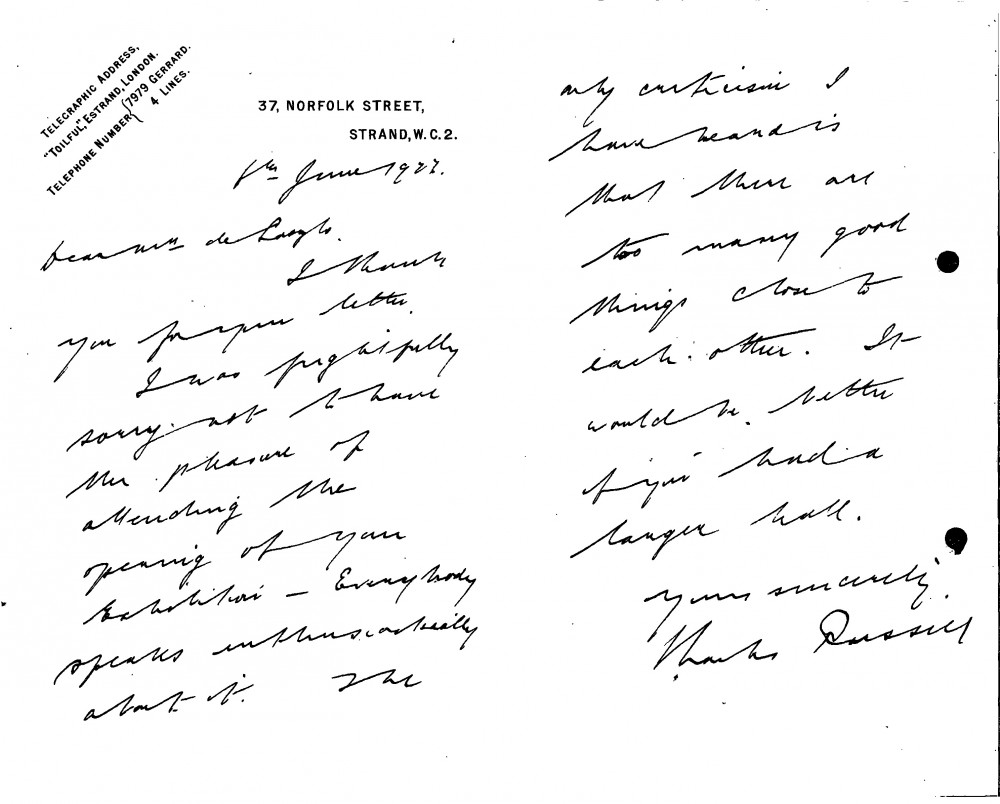 TELEGRAPHIC ADDRESS,
"TOILFUL," ESTRAND, LONDON.
TELEPHONE NUMBER {7979 GERRARD.
4 LINES.
37, NORFOLK STREET,
STRAND, W.C.2.
8th June 1927.
Dear Mrs de Laszlo.
I thank
you for your letter.
I was frightfully
sorry not to have
the pleasure of
attending the
opening of your
Exhibition — Everybody
speaks enthusiastically
about it. The
only criticism I
have heard is
that there are
too many good
things close to
each other. It
would be better
if you had a
larger hall.
Yours sincerely.
Charles Russell